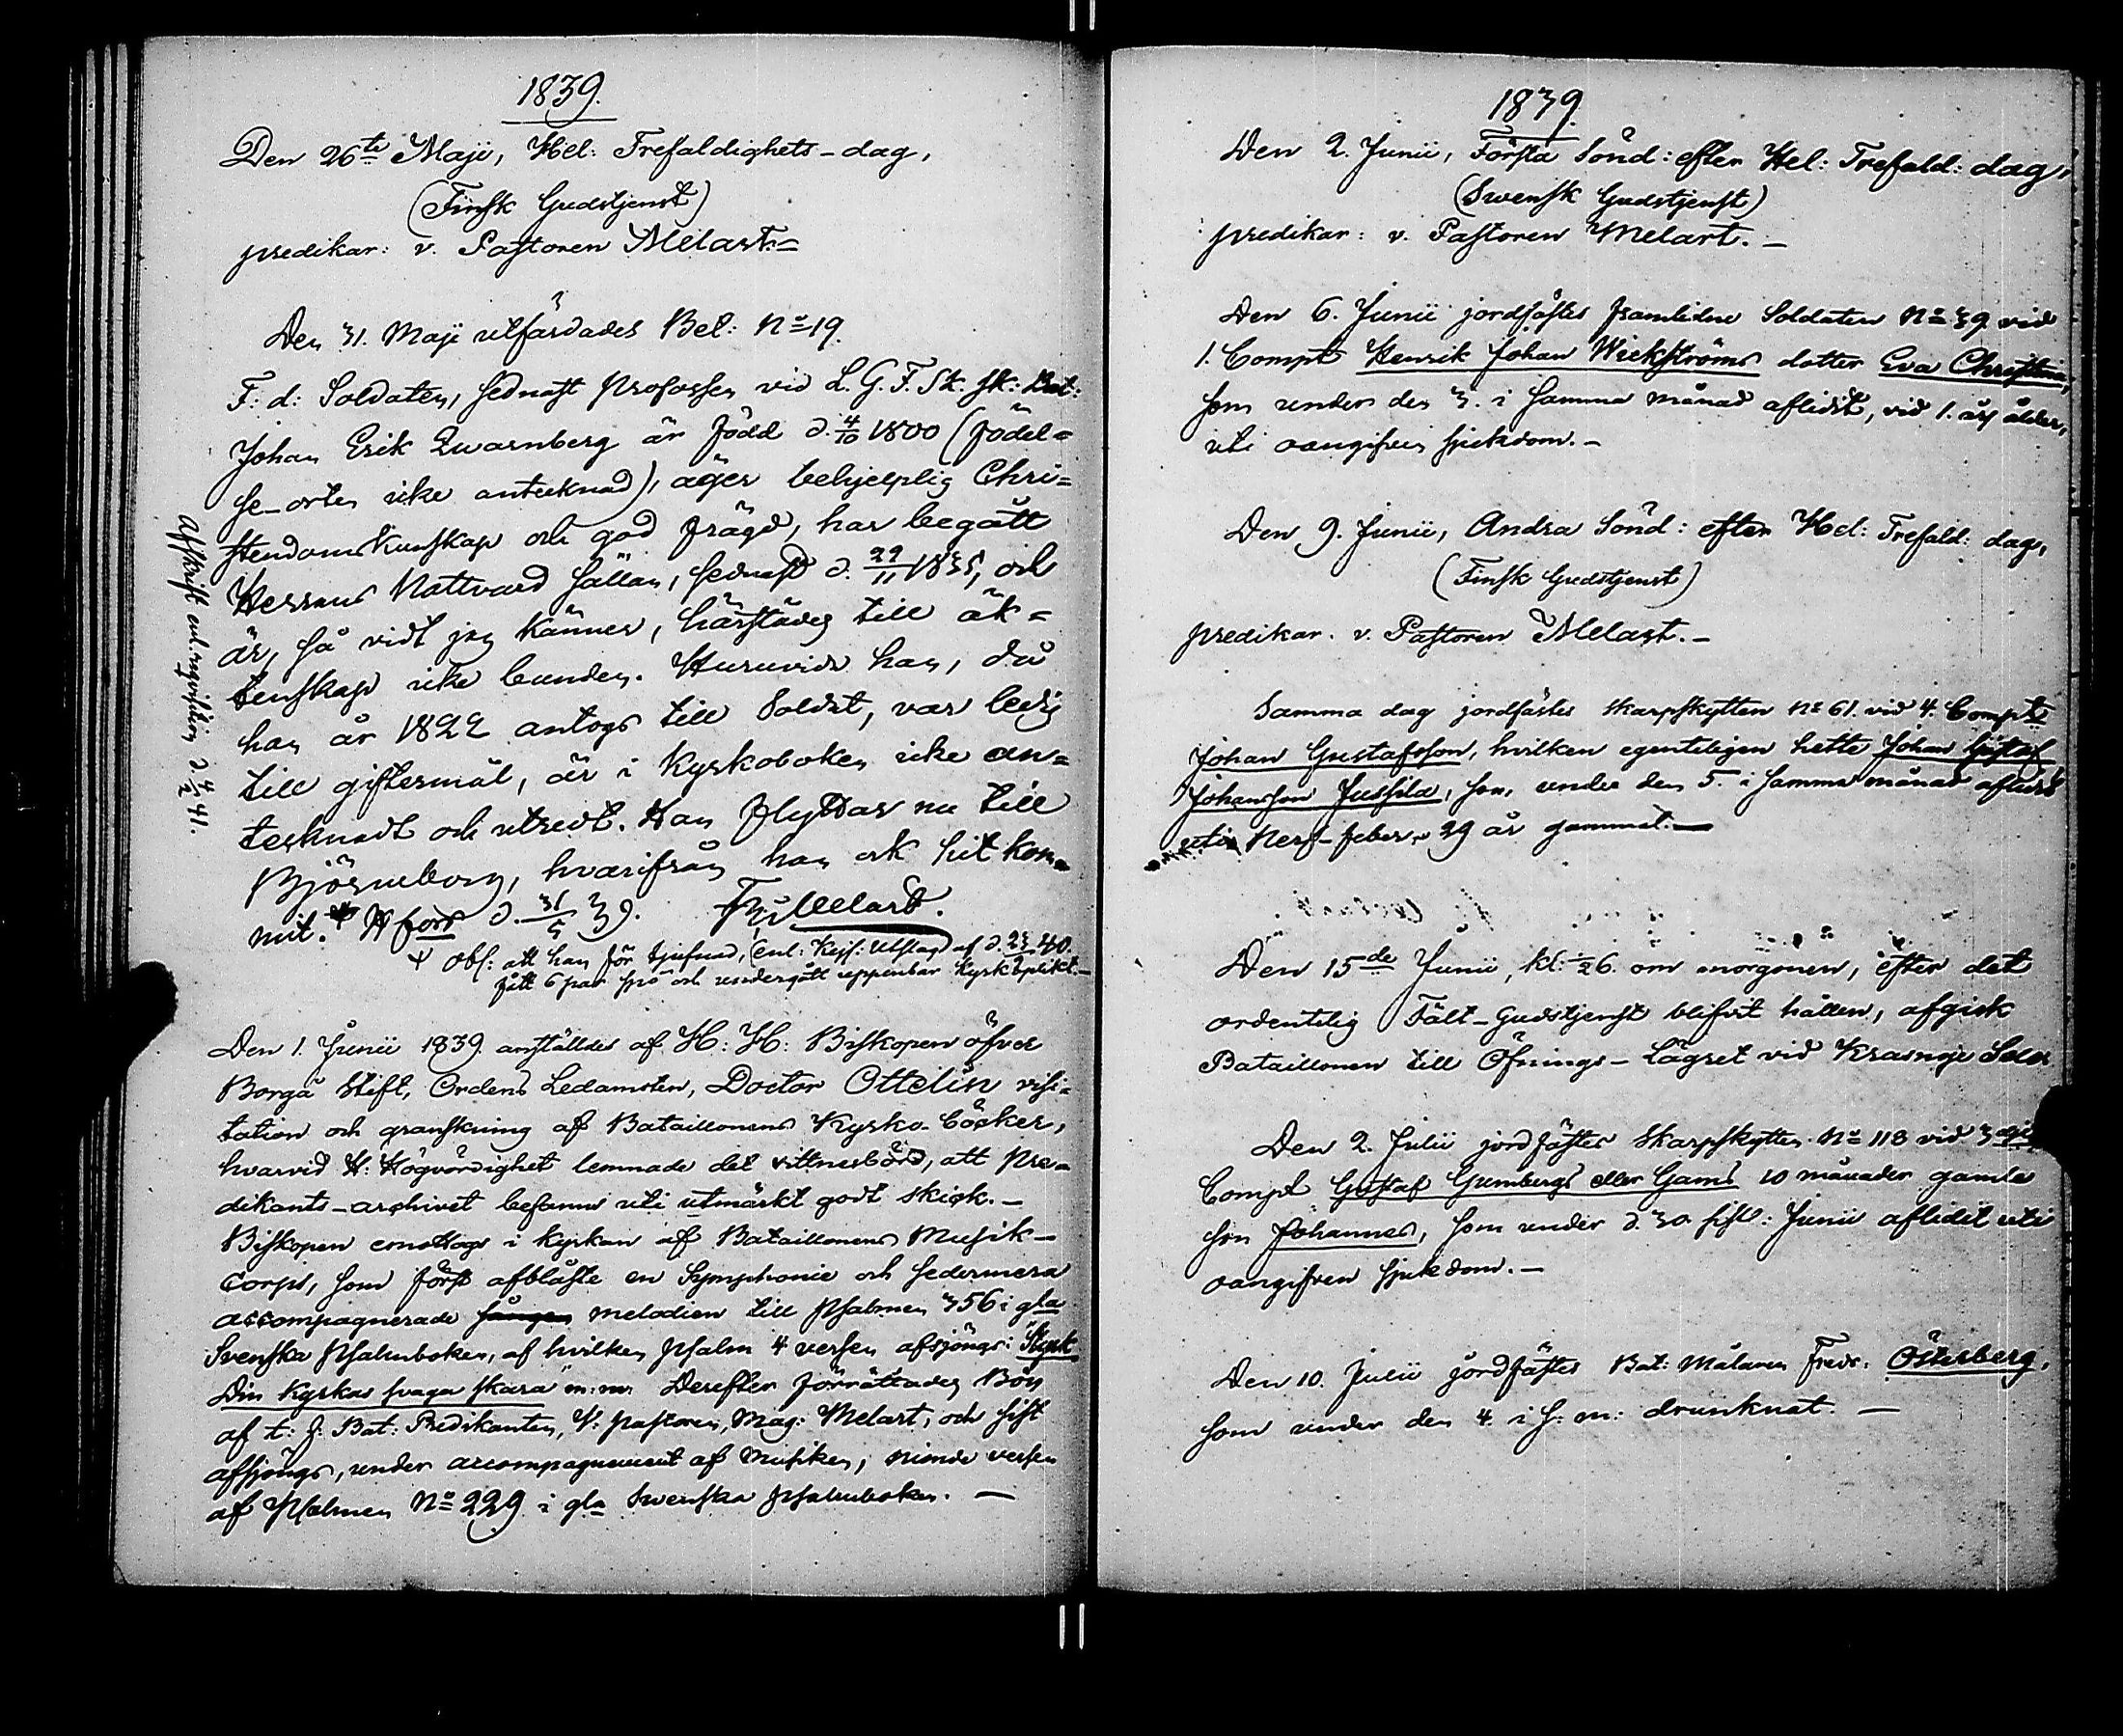 1839.
Den 26te Maji, Hel: Trefaldighets-dag,
(Finsk Gudstjenst)
predikar: v. Pastoren Melart.-
Den 31. Maji utfärdades Bet: No 19.
F: d: Soldaten, sednast profossen vid L. G. F. Sk. sk: Bat:
Johan Erik Qvarnberg är född d. 4/10 1800 (födel=
se-orten icke antecknad), äger behjelplig Chri=
stendomskunskap och god frägd, har begått
Herrans Nattvard sällan, sednast d. 29/11 1835, och
är, så vidt jag känner, härstädes till äk=
tenskap icke bunden. Huruvida han, då
han år 1822 antogs till Soldat, var ledig
till giftermål, är i Kyrkoboken icke an=
tecknadt och utredt. Han flyttar nu till
Björneborg, hvarifrån han ock hit kom=
mit. + Hfors d. 31/5 39. Melart.
+ Obs: att han för tjufnad, (enl: Kejs: Utslag af d. 40.
fått 6 par spö och undergått uppenbar Kyrkoplikt.-
Afskrift enl. d. 4/2 41.
Den 1. Junii 1839 anställdes af H: H: Biskopen öfver
Borgå Stift, Ordens Ledamoten, Doctor Ottelin visi=
tation och granskning af Bataillonens Kyrko-böcker,
hvarvid H: Högvördighet lemnade det vittnesbörd, att Pre=
dikants-archivet befanns uti utmärkt godt skick.-
Biskopen emottogs i kyrkan af Bataillonens Musik-
Corps, som först afblåste en Symphonie och sedermera
accompagnerade sången melodien till Psalmen 356 i gla
Svenska Psalmboken, af hvilken psalm 4 versen afsjöngs: "Styrk
Din Kyrkas svaga skara" m: m. Derefter förrättades Bön
af t: f: Bat: Predikanten, V: pastoren, Mag: Melart, och sist
afsjöngs, under accompagnement af Musiken, nionde versen
af Psalmen No 229 i gla Swenska psalmboken. -
1839.
Den 2. Junii, Första Sönd: efter Hel: Trefald: dag,
(Swensk Gudstjenst)
predikar: v. Pastoren Melart.-
Den 6. Junii jordfästes framlidne Soldaten No 39 vid
1. Compt Henrik Johan Wickströms dotter Eva Christina,
som under den 3. i samma månad aflidit, vid 1. års ålder,
uti oangifven sjukdom.-
Den 9. Junii, Andra Sönd: efter Hel: Trefald: dag,
(Finsk Gudstjenst)
predikar. v. Pastoren Melart.-
Samma dag jordfästes skarpskytten No 61. vid 4. Compt
Johan Gustafsson, hvilken egenteligen hette Johan Gustaf
Johansson Jussila, som under den 5. i samma månad aflidit
uti Nerf-feber, 29 år gammal.-
Den 15de Junii, kl: 1/2 6. om morgonen, efter det
ordentelig Fält-Gudstjenst blifvit hållen, afgick
Bataillonen till Öfnings-Lägret vid Krasnoje Selo
Den 2. Julii jordfästes Skarpskytten No 118 vid 3dje
Compt Gustaf Gumbergs eller Gams 10 månader gamla
son Johannes, som under d. 30. sistl: Junii aflidit uti
oangifven sjukdom.-
Den 10. Julii jordfästes Bat: Målaren Fredr: Österberg,
som under den 4. i s: m: drunknat. -